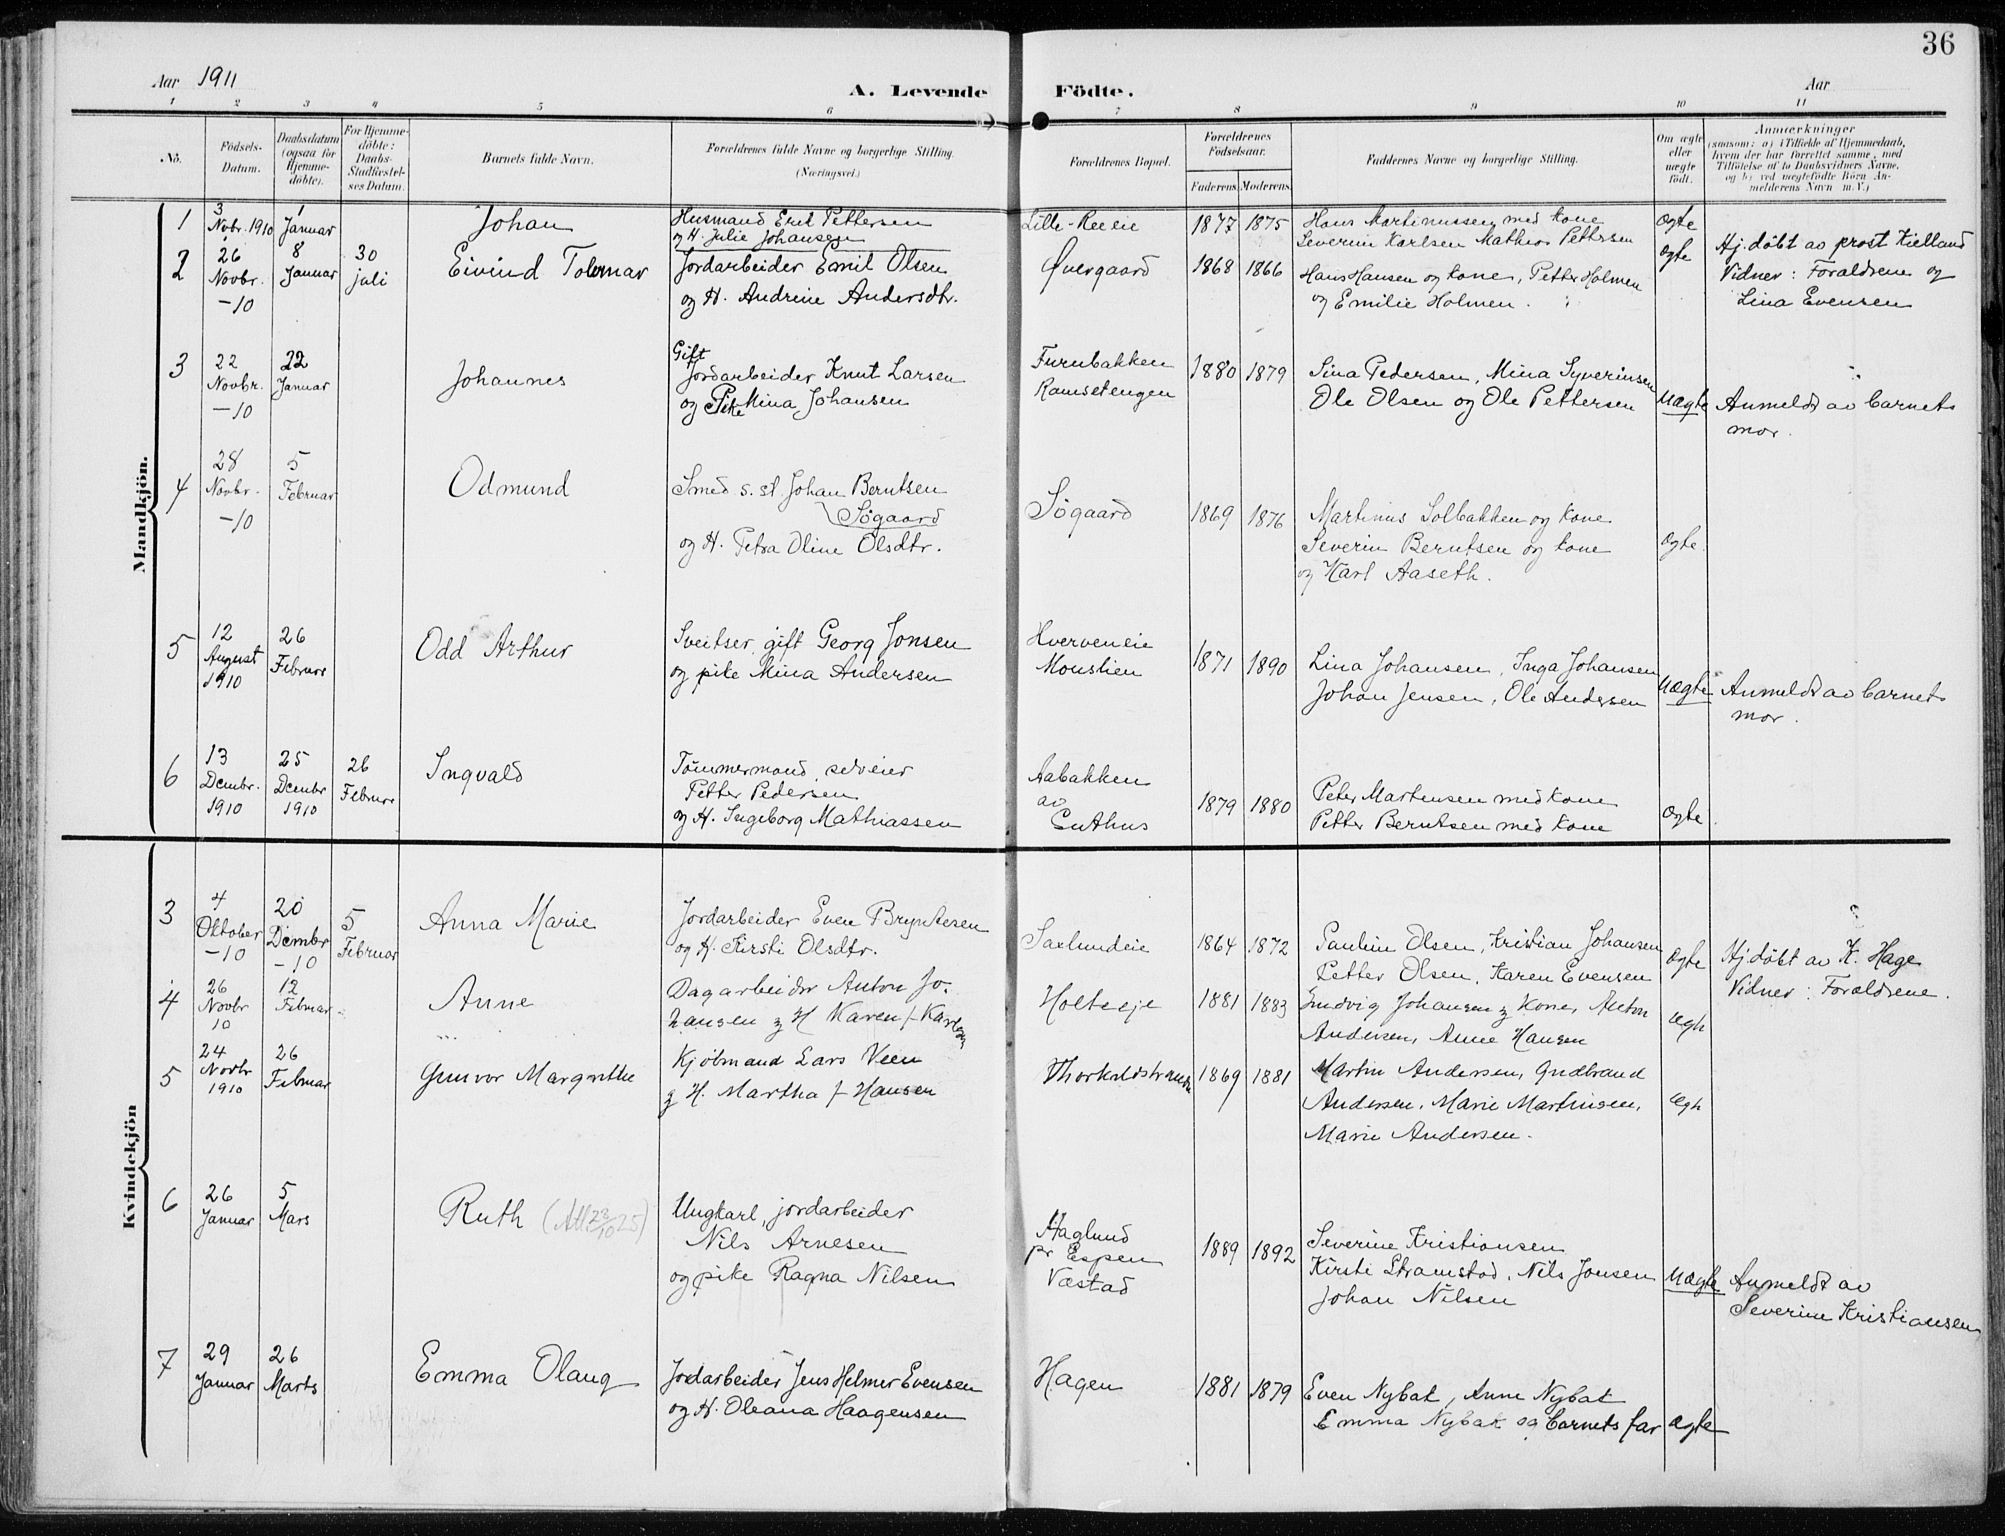 36
Aar 1911
A. Levende Födte.
Aar
1 2 3 4 5 6 7 8 9 10 11
No.
Födsels-
Datum.
Daabsdatum
(ogsaa for
Hjemme-
döbte).
For Hjemme-
döbte:
Daabs-
Stadfæstel-
ses Datum.
Barnets fulde Navn.
Forældrenes fulde Navne og borgerlige Stilling.
(Næringsvei.)
Forældrenes Bopæl.
Forældrenes
Födselsaar.
Faderens. Moderens.
Faddernes Navne og borgerlige Stilling.
Om ægte
eller
uægte
födt.
Anmærkninger
(saasom: a) i Tilfælde af Hjemmedaab,
hvem der har forrettet samme, med
Tilföielse af to Daabsvidners Navne,
og b) ved uægtefödte Börn An-
melderens Navn m. V.)
Mandkjön.
1
3
Novbr. 1910
1
Januar
Johan
Husmand Emil Pettersen
og H. Julie Johansen
1877 1875
Hans Martinussen med kone
Severin Karlsen Mathea Pettersen
Ægte
2
26
Novbr.
-10
8
Januar
30
juli
Eivind
Jordarbeider Emil Olsen
og H. Andrine Andersdtr.
Øvergaard
1868 1866
Hans Hansen og kone, Petter Holmen
og Emilie Holmen.
Ægte
Hj.døbt av prost Kielland
Vidner: Forældrene og
Lina Evensen
3
22
Novbr.
-10
22
Januar
Johannes
Gift
Jordarbeider Knut Larsen
og Pike Mina Johansen
Furubakken
Ramsetengen
1880 1879
Lina Pedersen, Mina Syverinsen
Ole Olsen og Ole Pettersen
Uægte
Anmeldt av barnets
mor.
4
28
Novbr.
-10
5
Februar
Odmund
Smed s. st. Johan Berntsen
Søgaard
og H. Petra Oline Olsdtr.
Søgaard
1869 1876
Martinus Solbakken og kone
Severin Berntsen og kone
og Karl Aaseth.
Ægte.
5
12
August
1910
26
Februar
Odd Arthur
Sveitser, gift Georg Jonsen
og pike Mina Andersen
Hverveneie
Monslien
1871 1890
Lina Johansen, Inga Johansen
Johan Jensen, Ole Andersen
Uægte
Anmeldt av barnets
mor.
6
13
Dcembr.
1910
25
Dcembr
1910
26
Februar
Ingvald
Tømmermand, selveier
Petter Pedersen
og H. Ingeborg Mathiassen
Aabakken
av
1879 1880
Peter Martensen med kone
Petter Berntsen med kone
Ægte.
Kvindekjön
3
4
Oktober
-10
20
Dcembr
-10
5
Februar
Anna Marie
Jordarbeider Even Bryntesen
og H. Kirsti Olsdtr.
Saxlundeie
1864 1872
Pauline Olsen, Kristian Johansen
Petter Olsen, Karen Evensen
Ægte
Hj.døbt av K. Hage
Vidner: Forældrene.
4
26
Novbr
10
12
Februar
Anne
Dagarbeider Anton Jo-
hansen g H Karen f. Karlsen
Holtseje
1881 1883
Ludvig Johansen g Kone, Anton
Andersen, Anne Hansen
Ægte
5
24
Novbr
1910
26
Februar
Gunvor Margrethe
Kjøbmand Lars Veen
g H. Martha f Hansen
Thorkildstranden
1869 1881
Martin Andersen, Gudbrand
Andersen, Marie Martinsen,
Marie Andersen.
Ægte
6
26
Januar
5
Mars
Ruth (Att 23/10 25)
Ungkarl, jordarbeider
Nils Arnesen
og pike Ragna Nilsen
Haglund
pr Espen
Væstad
1889 1892
Severine Kristiansen
Kirsti Stramstad, Nils Jonsen
Johan Nilsen
Uægte
Anmeldt av
Severine Kristiansen
7
29
Januar
26
Marts
Emma Olaug
Jordarbeider Jens Helmer Evensen
og H. Oleana Haagensen
Hagen
1881 1879
Even Nybak, Anne Nybak
Emma Nybak og barnets far
Ægte